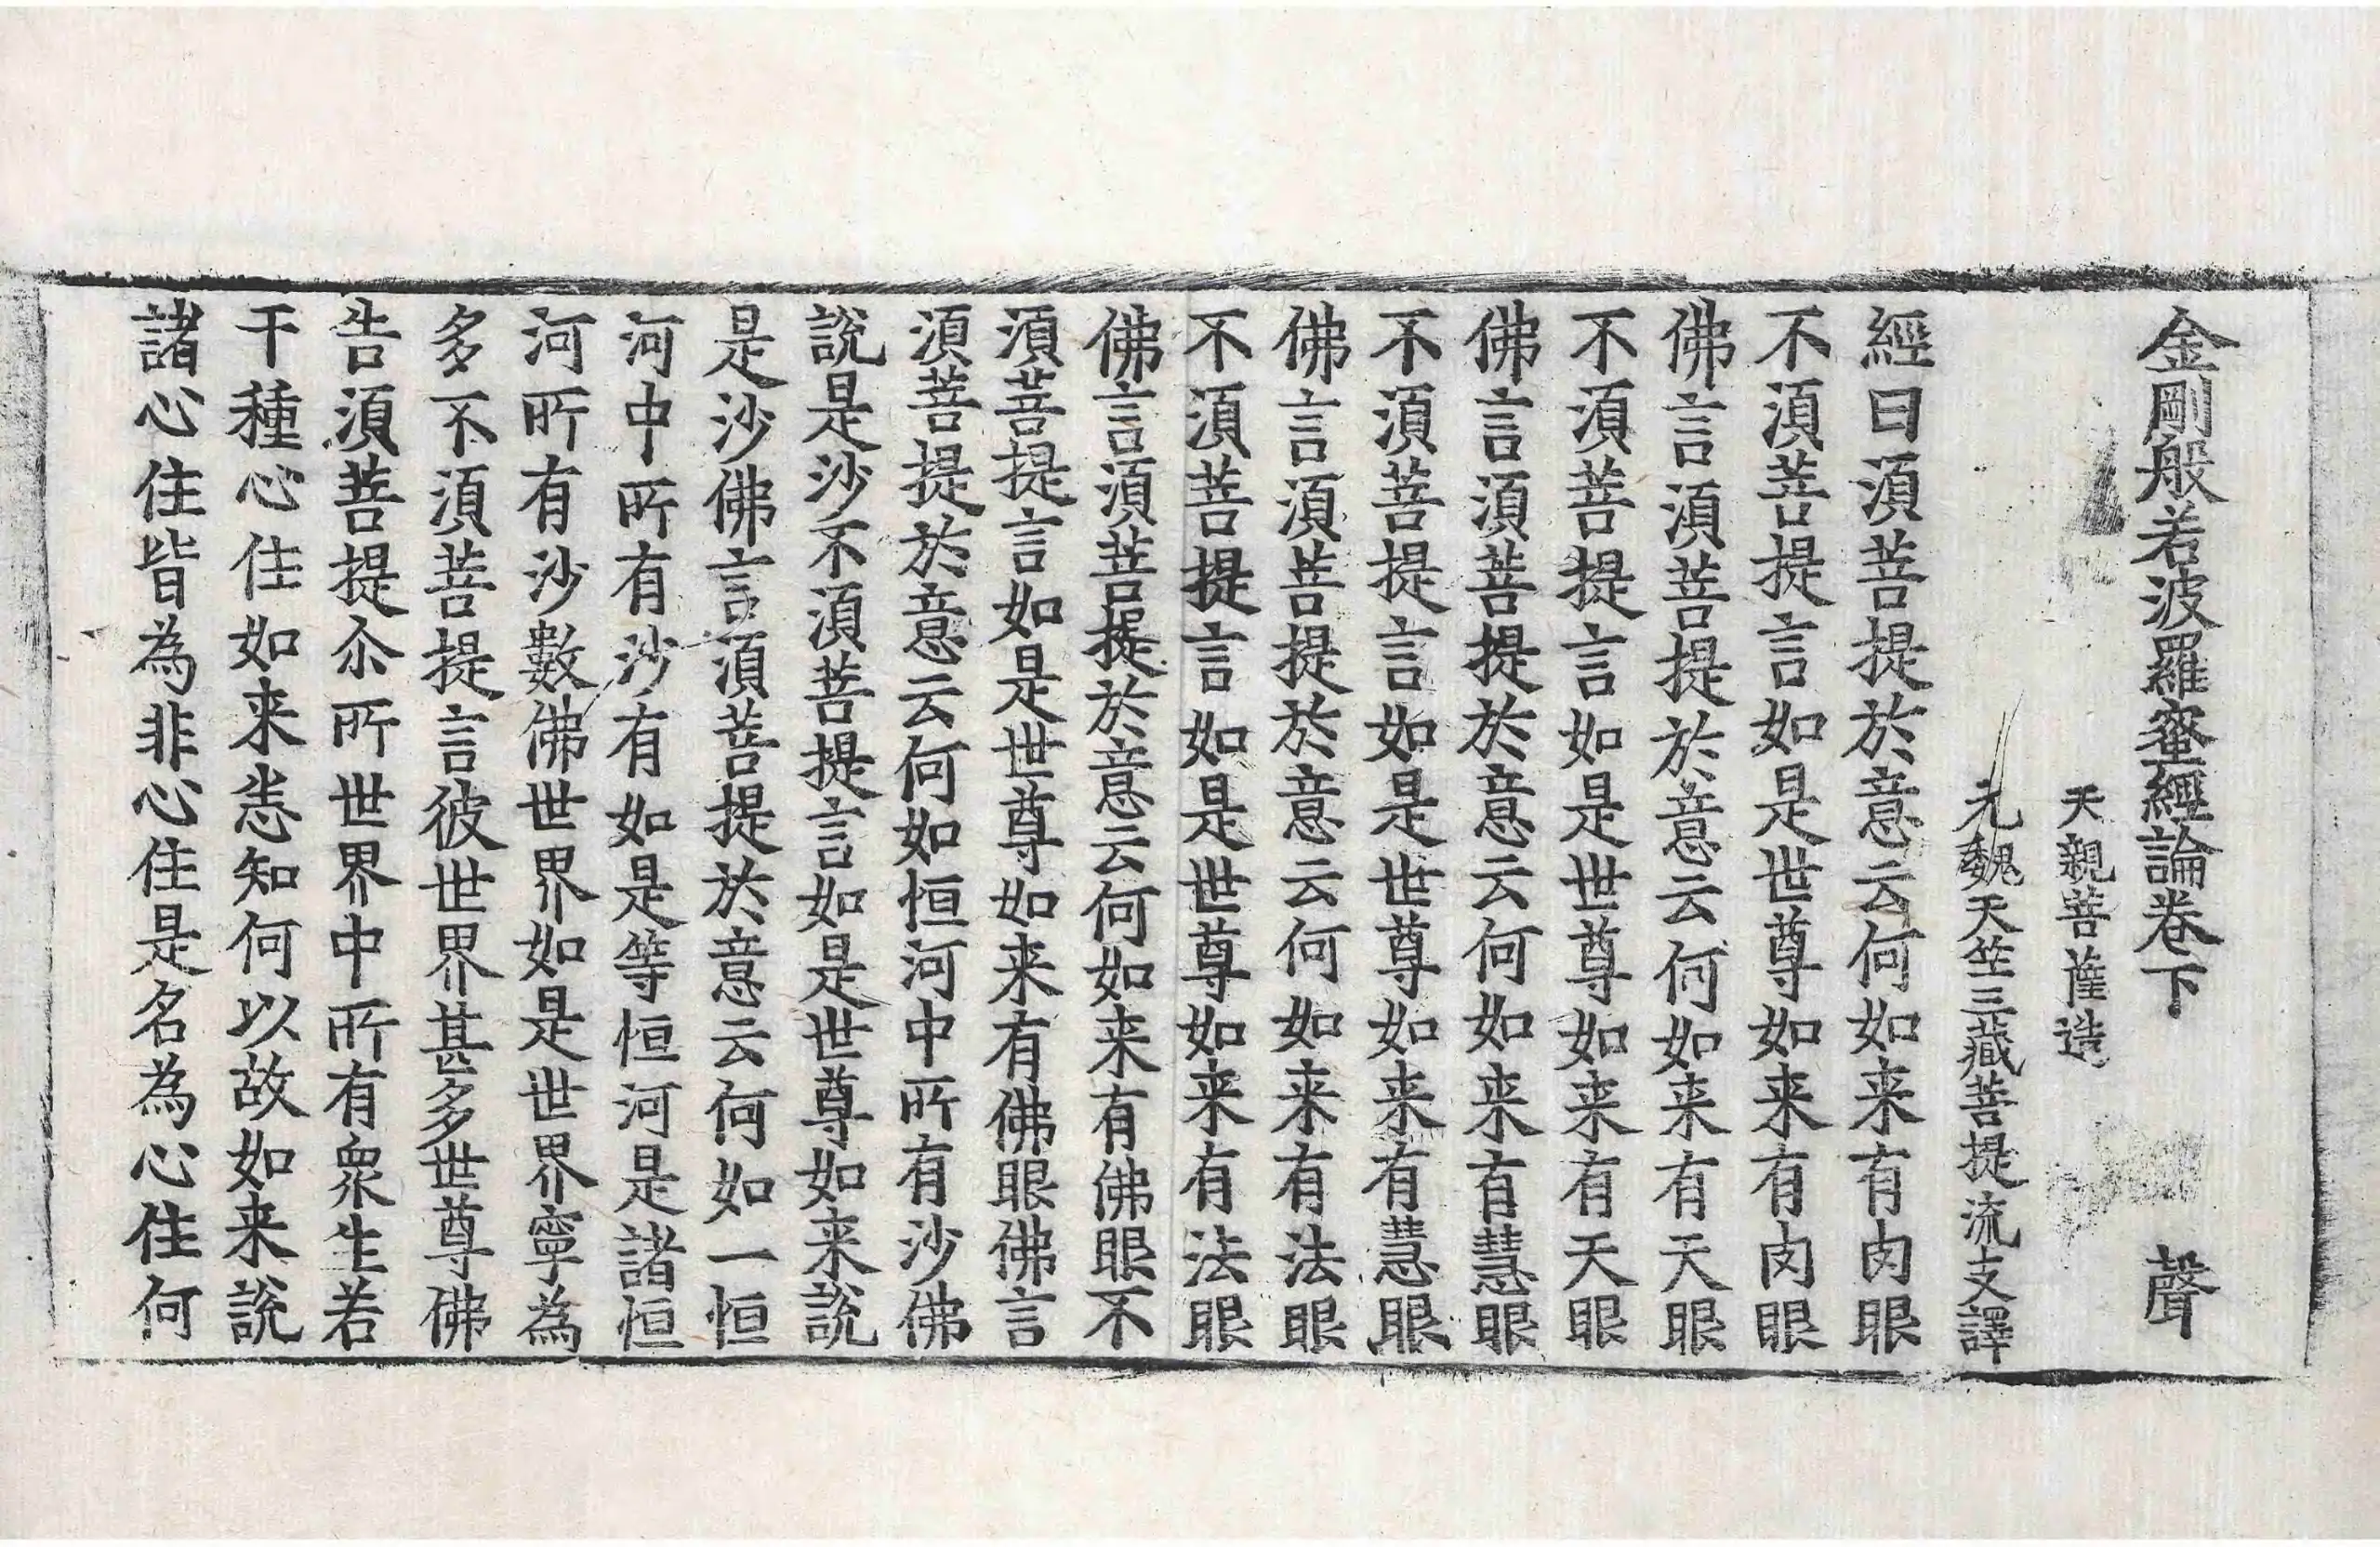 金剛般若波羅蜜經論卷下 聲
天親菩薩造
元魏天竺三藏菩提流支譯
經曰須菩提於意云何如来有肉眼
不須菩提言如是世尊如来有肉眼
佛言須菩提於意云何如来有天眼
不須菩提言如是世尊如来有天眼
佛言須菩提於意云何如来有慧眼
不須菩提言如是世尊如来有慧眼
佛言須菩提於意云何如来有法眼
不須菩提言如是世尊如来有法眼
佛言須菩提於意云何如来有佛眼不
須菩提言如是世尊如来有佛眼佛言
須菩提於意云何如恒河中所有沙佛
說是沙不須菩提言如是世尊如来說
是沙佛言須菩提於意云何如一恒
河中所有沙有如是等恒河是諸恒
河所有沙數佛世界如是世界寧為
多不須菩提言彼世界甚多世尊佛
告須菩提尒所世界中所有衆生若
干種心住如来悉知何以故如来說
諸心住皆為非心住是名為心住何